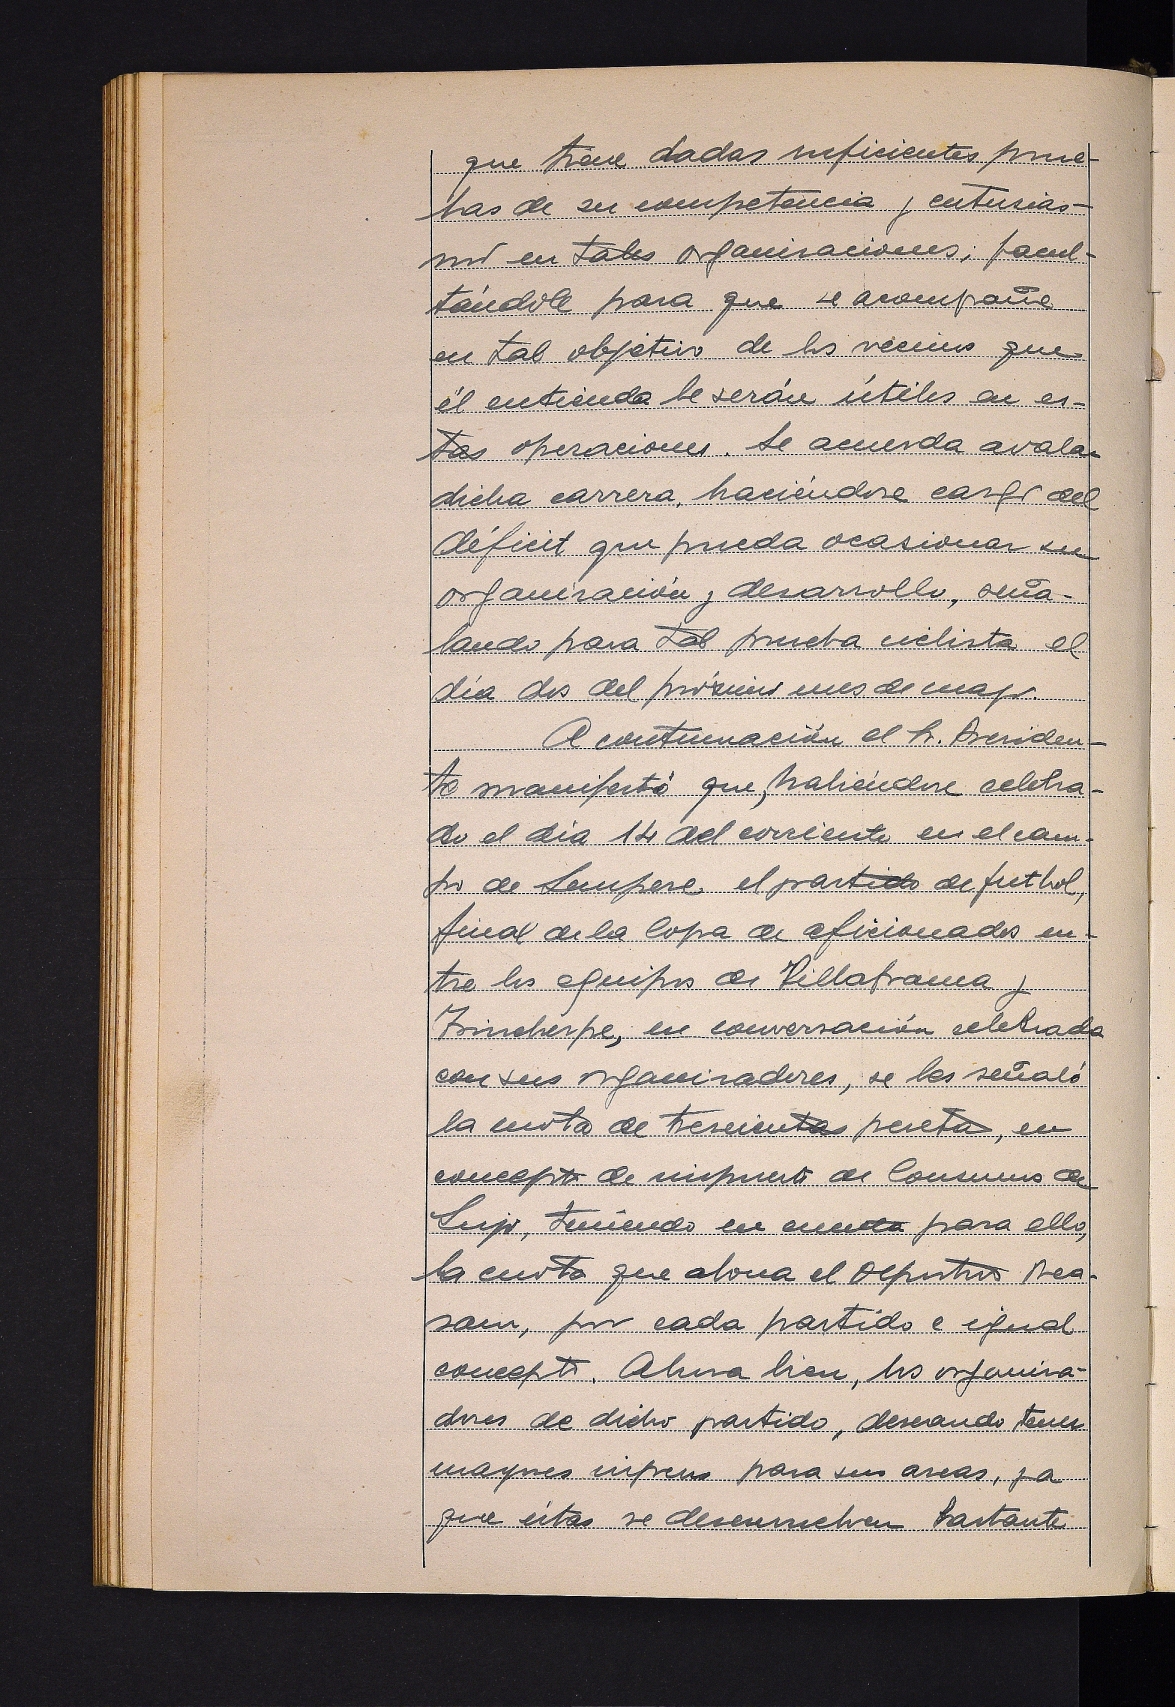 que tiene dadas suficientes prue-
bas de su competencia y entusias-
mo en tales organizaciones; facul-
tándole para que se acompañe
en tal objetivo de los vecinos que
él entienda le serán útiles en es-
tas operaciones. Se acuerda avalar
dicha carrera, haciéndose cargo del
déficit que pueda ocasionar su
organización y desarrollo, seña-
lando para tal prueba ciclista el
día dos del próximo mes de mayo.
A continuación el Sr. Presiden-
te manifestó que, habiéndose celebra-
do el día 14 del corriente en el cam-
po de Sempere el partido de futbol,
final de la Copa de aficionados en-
tre los equipos de Villafranca y
Trincherpe, en conversación celebrada
con sus organizadores, se les señaló
la cuota de trescientas pesetas, en
concepto de impuesto de Consumos de
Lujo, teniendo en cuenta para ello,
la cuota que abona el Deportivo Bea-
sain, por cada partido e igual
concepto. Ahora bien, los organiza-
dores de dicho partido, deseando tener
mayores ingresos para sus arcas, ya
que éstas se desenvuelven bastante